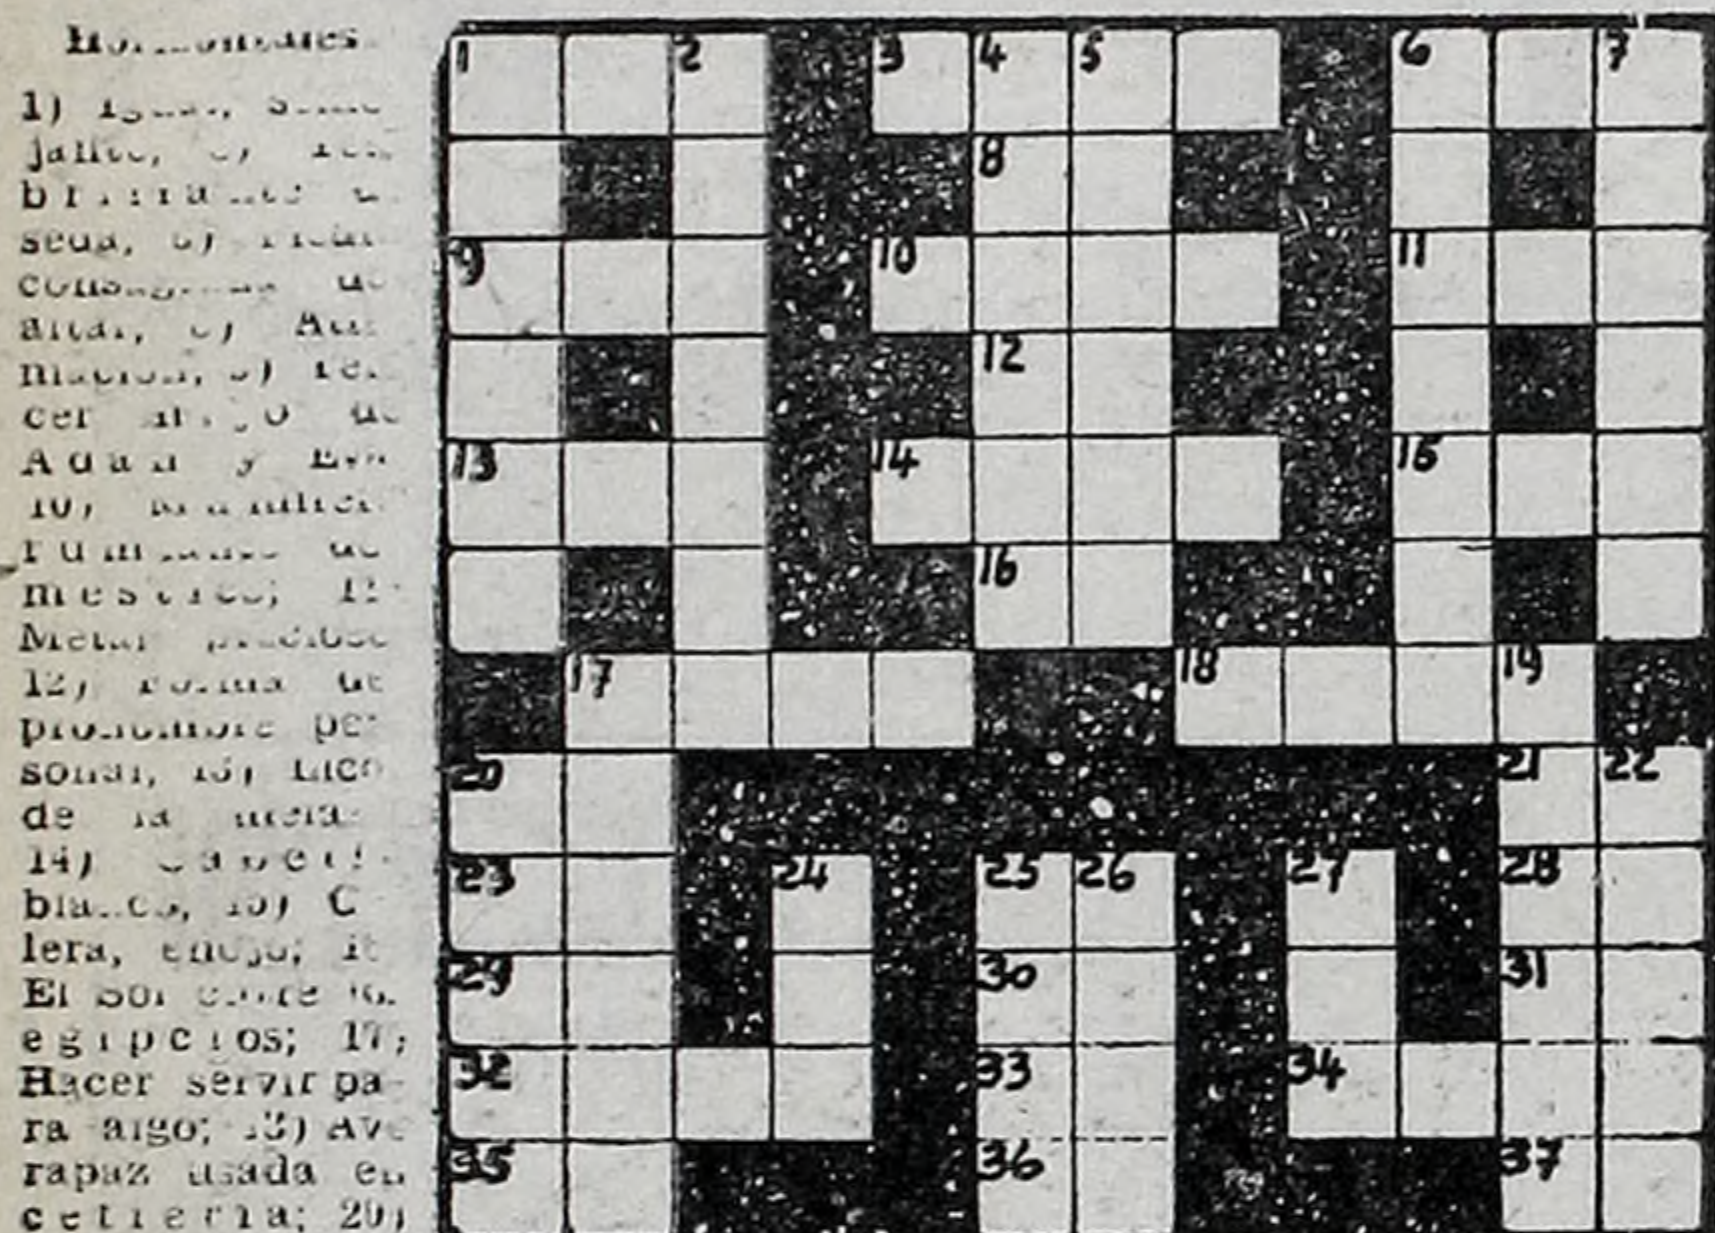 Horizontales
1) Igual, seme-
jante,
brillante
seda,
altar,
mación,
cer hijo de
Adan y Eva
10) Mamífero
rumiante do-
mestico; 11)
Metal precioso
12) Forma de
pronombre per-
sonal, 13) Lico
de la
14) Cabell
blancos, 15) C
lera, enojo; 16
El Sol entre los
egipcios; 17)
Hacer servir pa-
ra algo; 18) Ave
rapaz usada en
cetreria; 20)
1 2 3 4 5 6 7
8
9 10 11
12
13 14 15
16
17 18 19
20 21 22
23 24 25 26 27 28
29 30 31
32 33 34
35 36 37